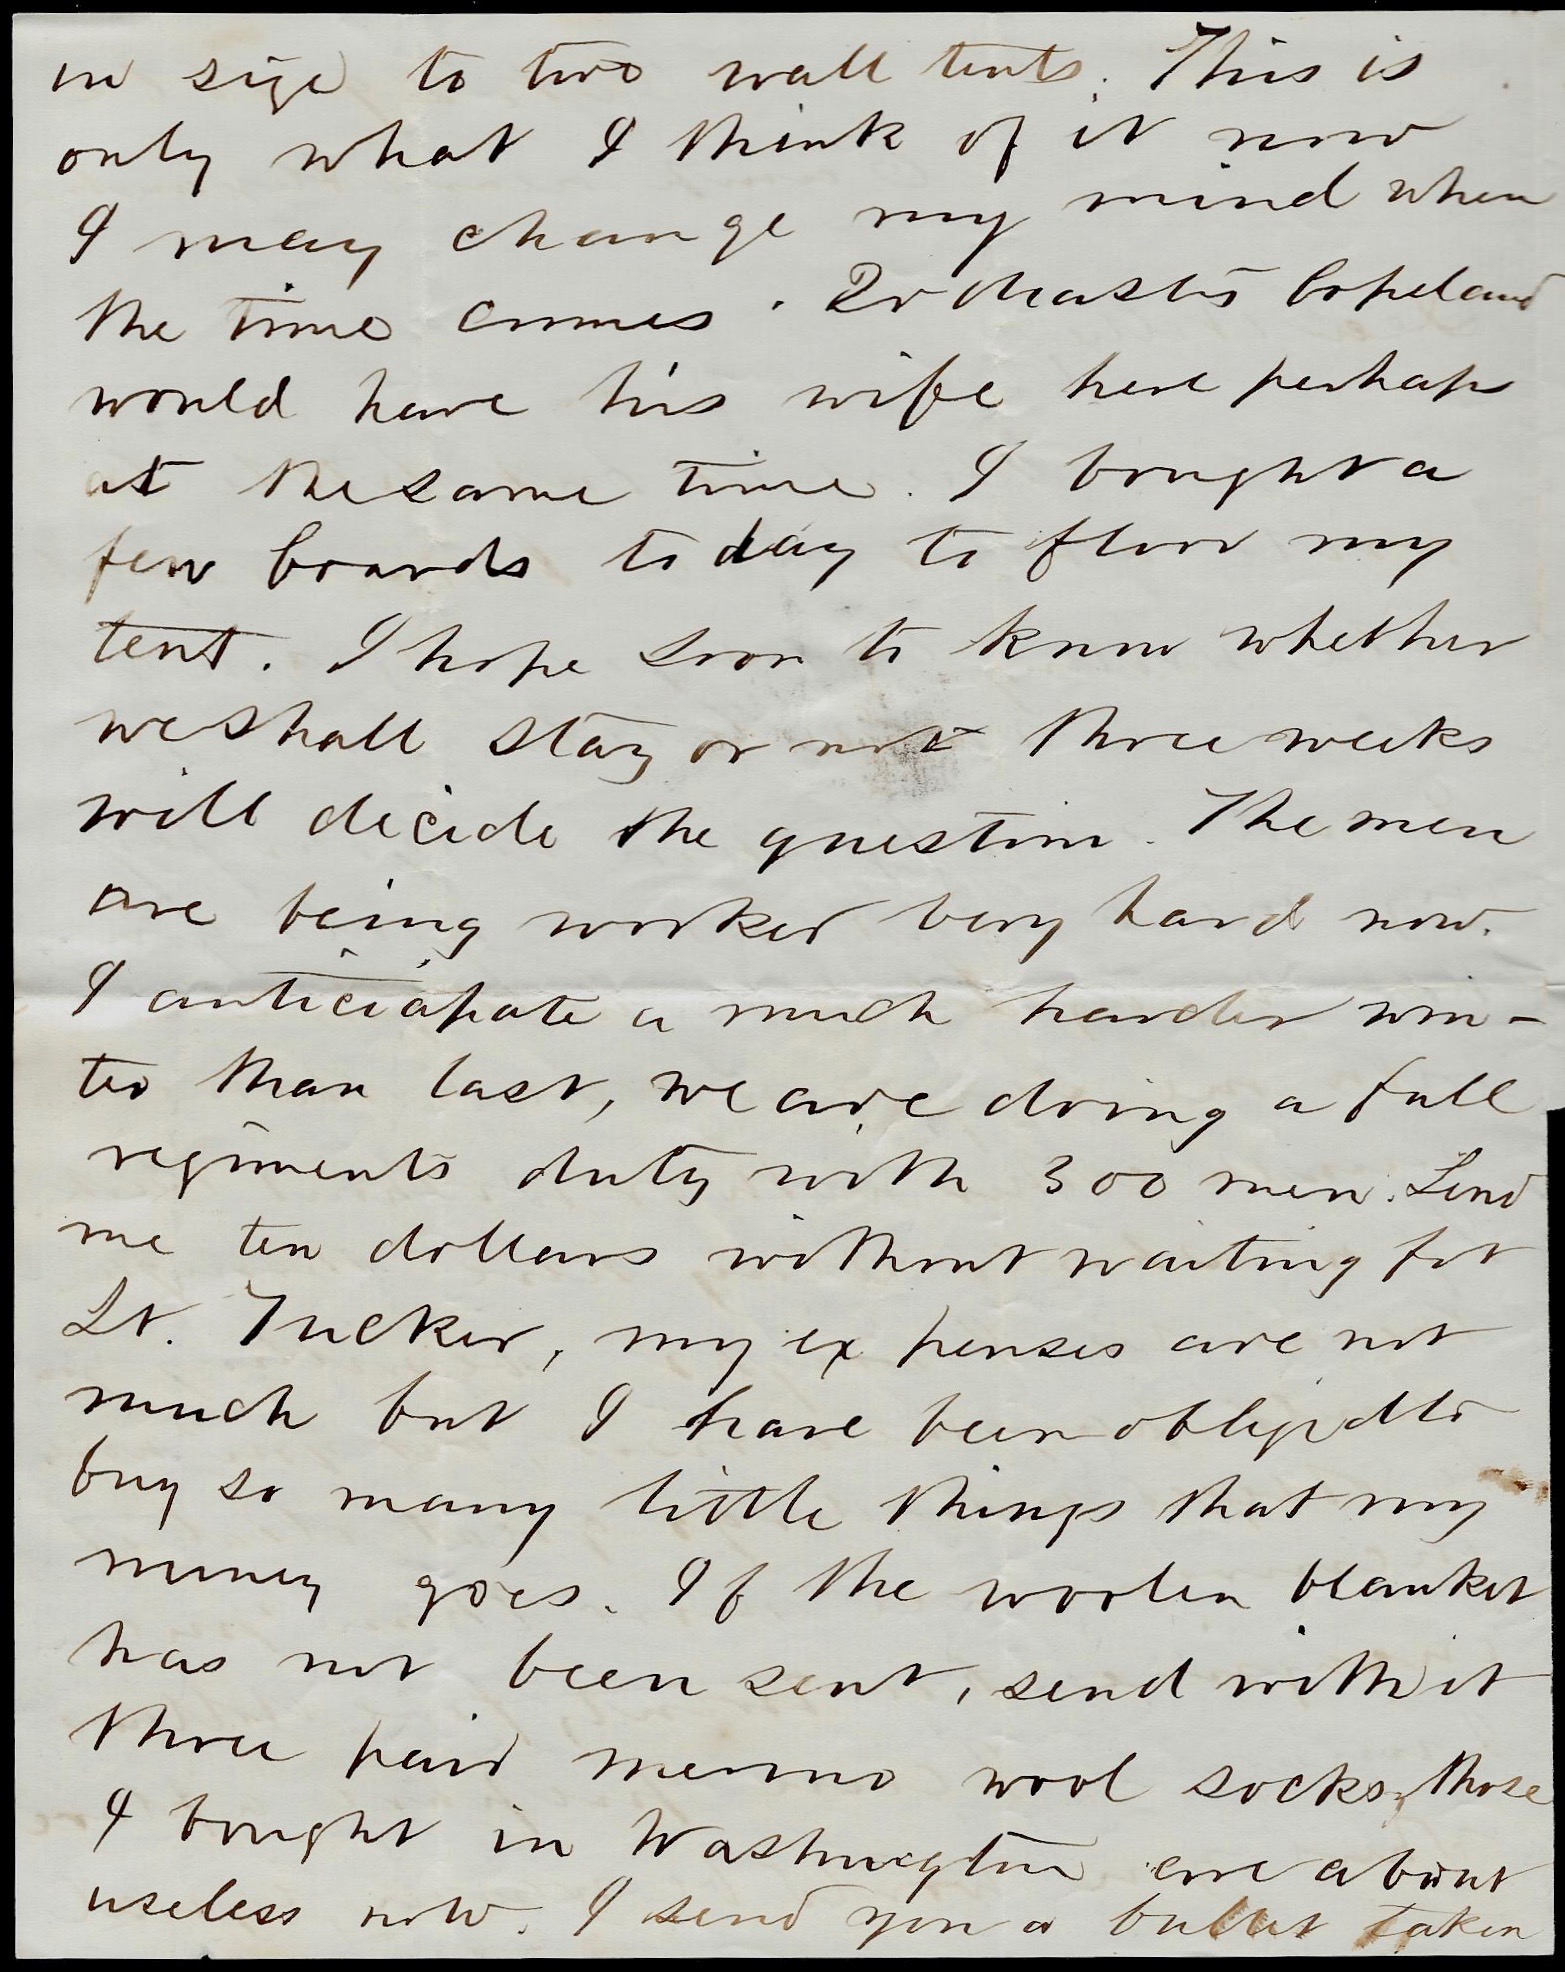 in size to two wall tents. This is
only what I think of it now
I may change my mind when
the time comes. Qr Master Copeland
would have his wife here perhaps
at the same time. I bought a
few boards to day to floor my
tent. I hope soon to know whether
we shall stay or not three weeks
will decide the question. The men
are being worked very hard now.
I anticiapate a much harder win-
ter than last, we are doing a full
regiments duty with 300 men. Send
me ten dollars without waiting for
Lt. Tucker, my expenses are not
much but I have been obliged to
buy so many little things that my
money goes. If the woolen blanket
has not been sent, send with it
three pair merino wool socks, those
I bought in Washington are about
useless now. I send you a bullet taken